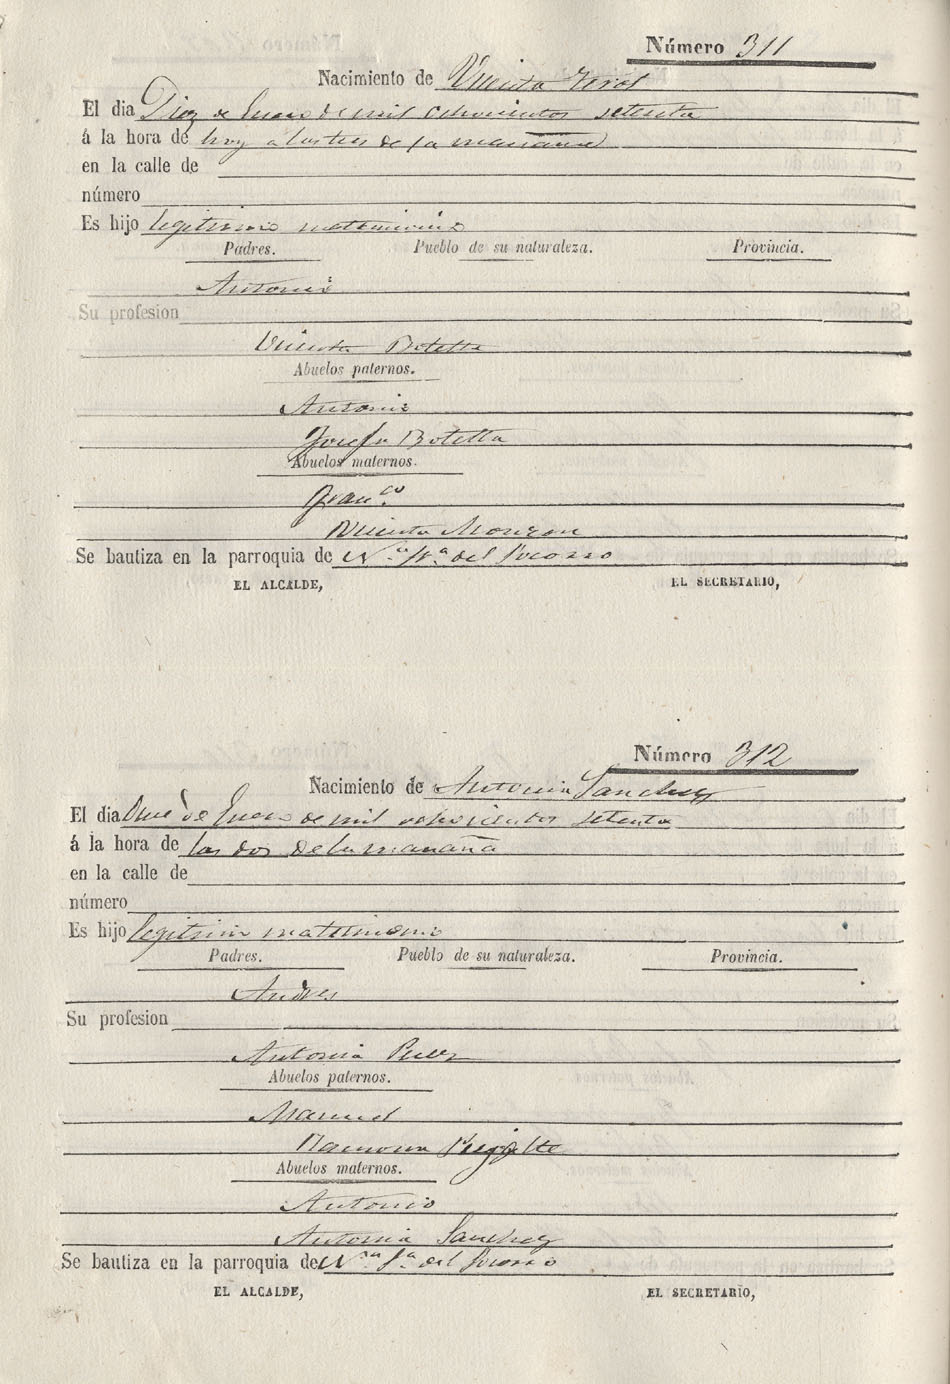 Número 311
Nacimiento de Vicenta Terol
El dia Diez de Enero de mil ochocientos setenta
á la hora de hoy a las tres de la mañana
en la calle de
número
Es hijo legitimo matrimonio
Padres. Pueblo de su naturaleza. Provincia.
Antonio
Su profesion
Vicenta Botella
Abuelos paternos.
Antonio
Josefa Botella
Abuelos maternos.
Franco
Vicenta Monzon
Se bautiza en la parroquia de Na. Sa. del Socorro
EL ALCALDE, EL SECRETARIO,
Número 312
Nacimiento de Antonia Sanchez
El dia Once de Enero de mil ochocientos setenta
á la hora de las dos de la mañana
en la calle de
número
Es hijo legitimo matrimonio
Padres. Pueblo de su naturaleza. Provincia.
Andres
Su profesion
Antonia
Abuelos paternos.
Manuel
Ramona
Abuelos maternos.
Antonio
Antonia Sanchez
Se bautiza en la parroquia de Nra Sa. del Socorro
EL ALCALDE, EL SECRETARIO,